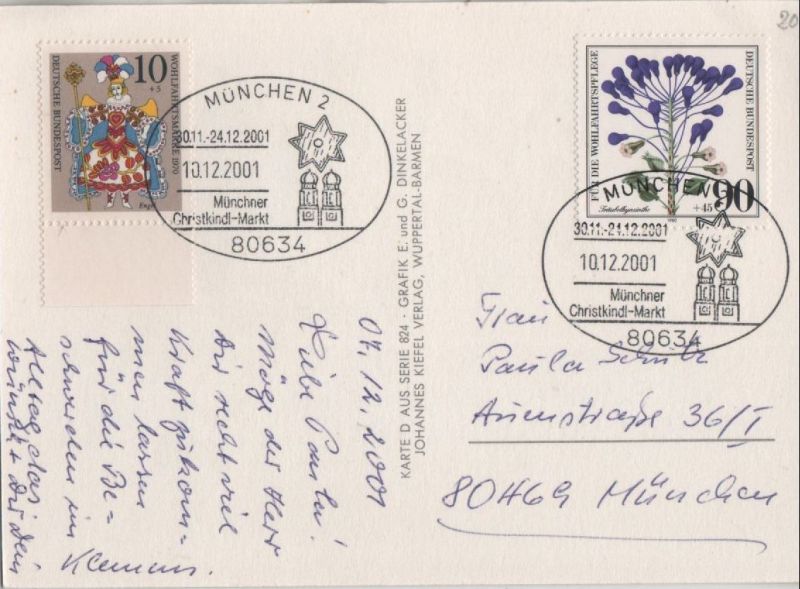 20
10
+5
DEUTSCHE BUNDESPOST
WOHLFAHRTSMARKE 1970
Engel
MÜNCHEN 2
30.11.-24.12.2001
10.12.2001
Münchner
Christkindl-Markt
80634
FÜR DIE WOHLFAHRTSPFLEGE
DEUTSCHE BUNDESPOST
+45 90
Träubelhyazinthe
1980
MÜNCHEN
30.11.-24.12.2001
10.12.2001
Münchner
Christkindl-Markt
80634
KARTE D AUS SERIE 824 · GRAFIK E. und G. DINKELACKER
JOHANNES KIEFEL VERLAG, WUPPERTAL-BARMEN
07.12.2001
Liebe Paula!
Möge der Herr
Dir recht viel
Kraft zukom-
men lassen
für die Be-
schwerden im
Alltag, das
wünscht Dir Dein
Klemens.
Frau
Paula Schulz
Auenstraße 36/I
80469 München